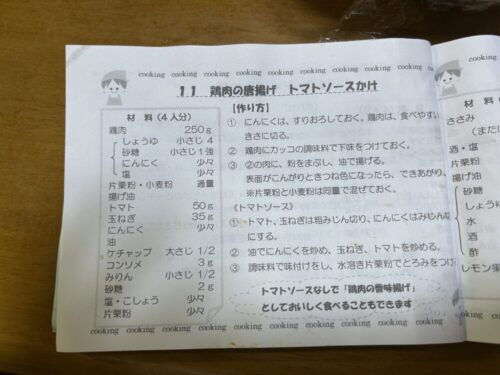 cooking cooking cooking cooking cooking cooking
11 鶏肉の唐揚げ トマトソースかけ
材 料(4人分)
鶏肉 250g
しょうゆ 小さじ 4
砂糖 小さじ1強
にんにく 少々
塩 少々
片栗粉・小麦粉 適量
揚げ油
トマト 50g
玉ねぎ 35g
にんにく 少々
油
ケチャップ 大さじ 1/2
コンソメ 3g
みりん 小さじ 1/2
砂糖 2g
塩・こしょう 少々
片栗粉 少々
【作り方】
① にんにくは、すりおろしておく。鶏肉は、食べやすい
きさに切る。
② 鶏肉にカッコの調味料で下味をつけておく。
③ ②の肉に、粉をまぶし、油で揚げる。
表面がこんがりときつね色になったら、できあがり。
※片栗粉と小麦粉は同量で混ぜておく。
《トマトソース》
① トマト、玉ねぎは粗みじん切り、にんにくはみじん
にする。
② 油でにんにくを炒め、玉ねぎ、トマトを炒める。
③ 調味料で味付けをし、水溶き片栗粉でとろみをつけ
トマトソースなしで「鶏肉の香味揚げ」
としておいしく食べることもできます
cooking cooking cooking cooking cooking cooking cooking
cooking
材
ささみ
(また
酒・塩
片栗粉
揚げ油
しょうゆ
水
酒
酢
レモン果
cooking